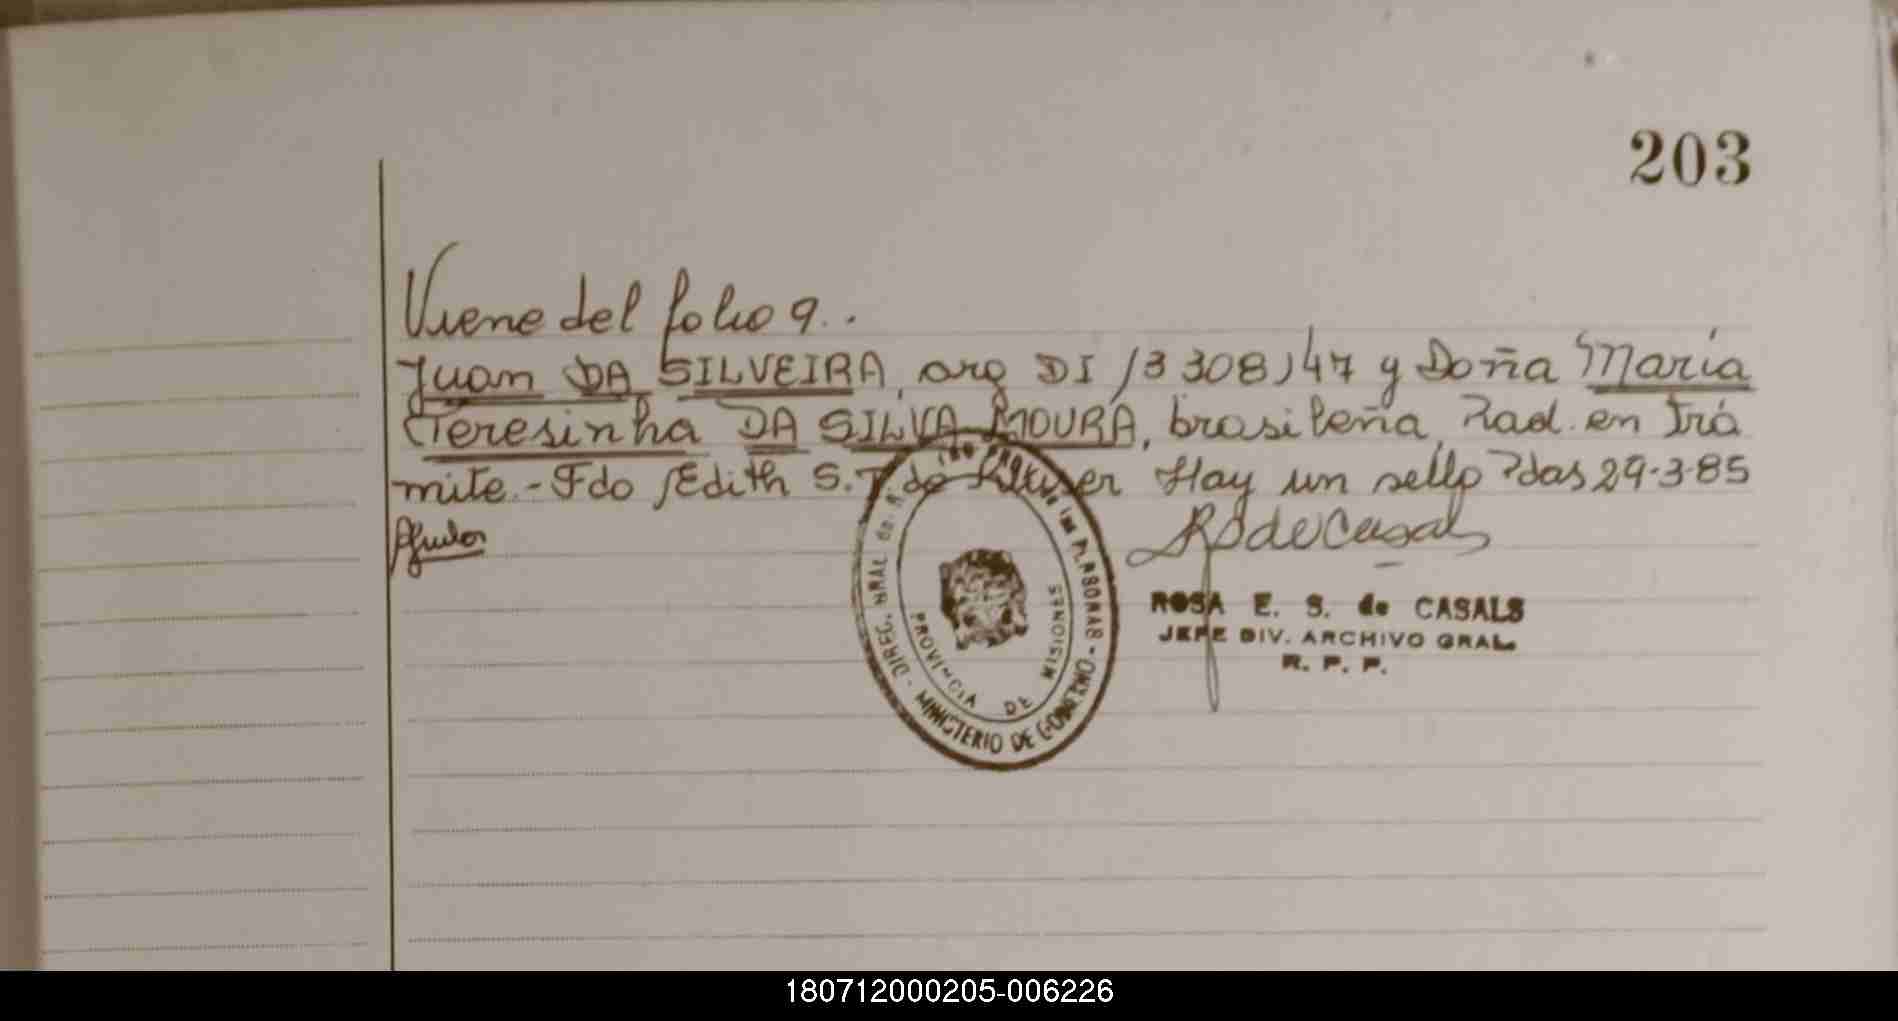 203
Viene del folio 9..
Juan DA SILVEIRA, arg DI 13 308 147 y Doña María
Teresinha DA SILVA MOURA, brasileña, Rad. en Trá
mite.- Fdo Edith S. T de er Hay un sello Pdas 29-3-85
ROSA E. S. de CASALS
JEFE DIV. ARCHIVO GRAL.
R. P. P.
DIREC. GRAL de las PERSONAS - MINISTERIO DE GOBIERNO -
PROVINCIA DE MISIONES
180712000205-006226